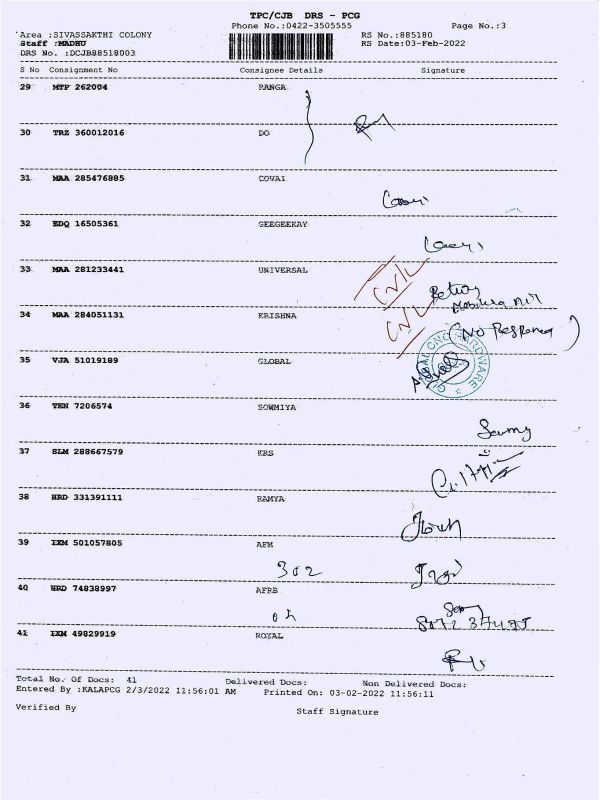 TPC/CJB DRS - PCG
Phone No.:0422-3505555 Page No.:3
Area :SIVASSAKTHI COLONY RS No.:885180
Staff :MADHU RS Date:03-Feb-2022
DRS No. :DCJB88518003
S No Consignment No Consignee Details Signature
29 MTP 262004 RANGA
30 TRZ 360012016 DO
31 MAA 285476885 COVAI
32 EDQ 16505361 GEEGEEKAY
33 MAA 281233441 UNIVERSAL
34 MAA 284051131 KRISHNA
(NO Response)
35 VJA 51019189 GLOBAL
36 TEN 7206574 SOWMIYA
37 SLM 288667579 KRS
38 HRD 331391111 RAMYA
39 IXM 501057805 AFM
302
40 HRD 74838997 AFRB
41 IXM 49829919 ROYAL
Total No. Of Docs: 41 Delivered Docs: Non Delivered Docs:
Entered By :KALAPCG 2/3/2022 11:56:01 AM Printed On: 03-02-2022 11:56:11
Verified By Staff Signature